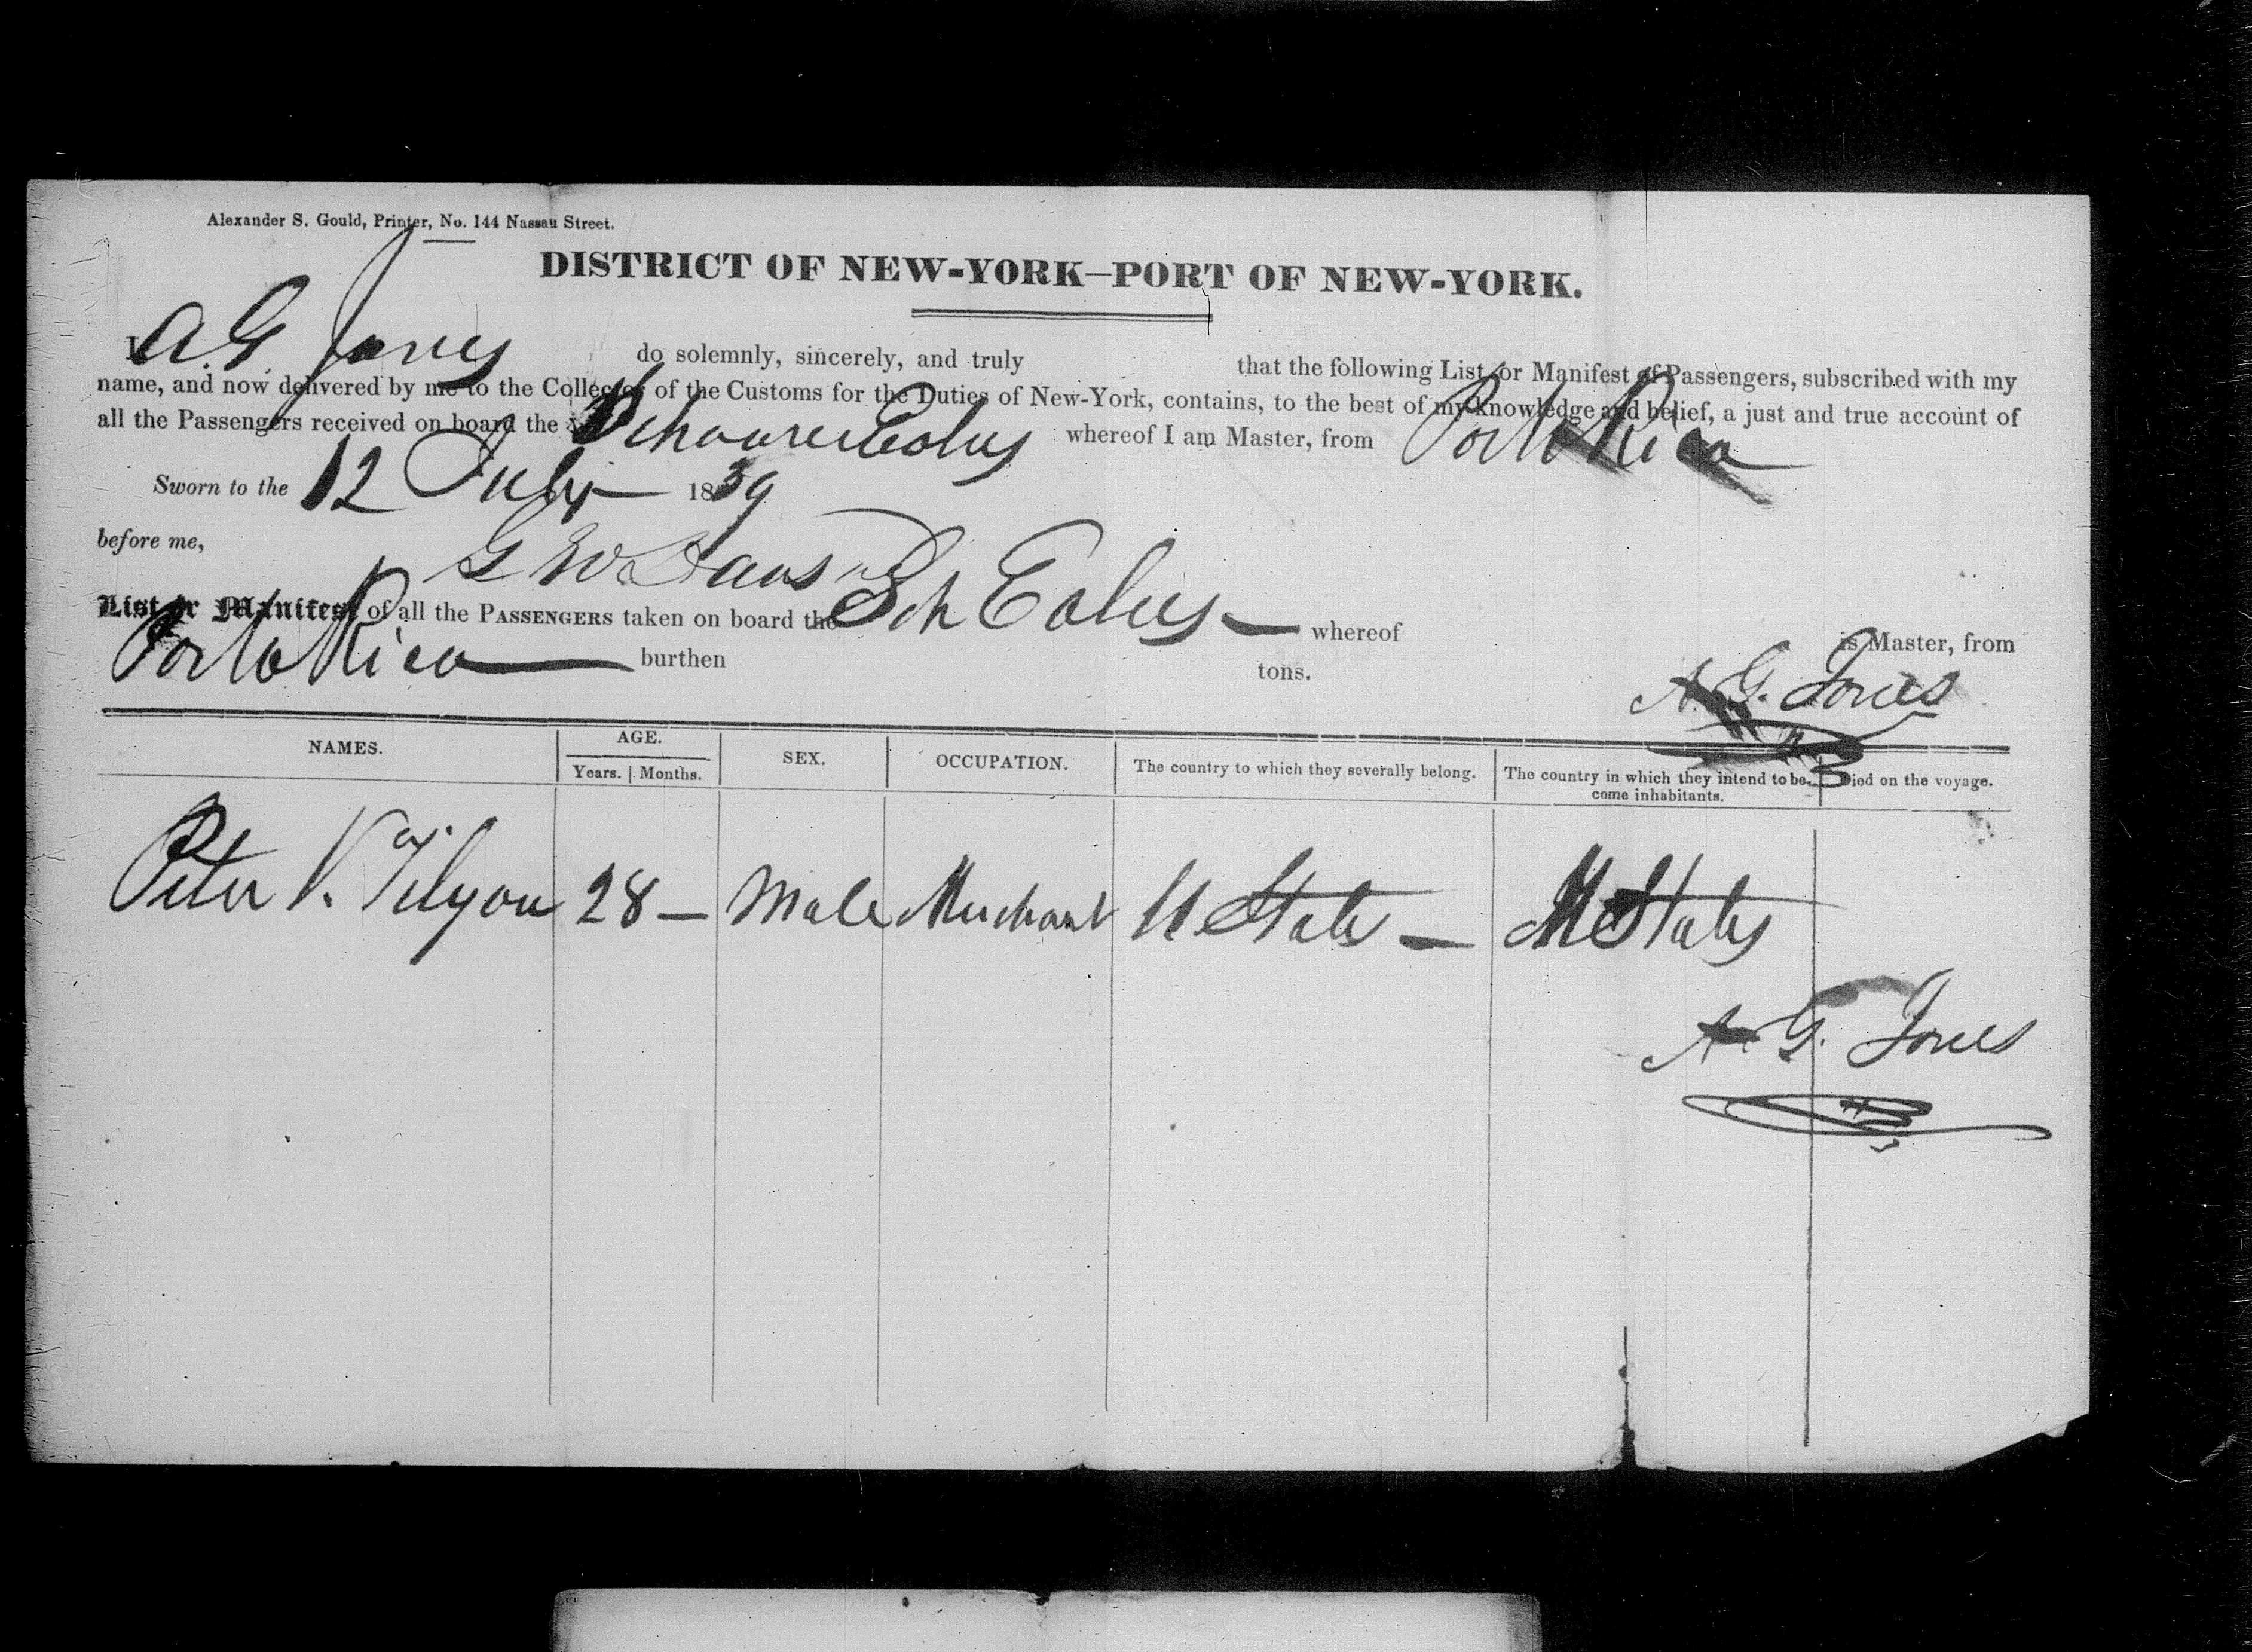 Alexander S. Gould, Printer, No. 144 Nassau Street.
DISTRICT OF NEW-YORK—PORT OF NEW-YORK.
I A. G. Jones do solemnly, sincerely, and truly that the following List or Manifest of Passengers, subscribed with my
name, and now delivered by me to the Collector of the Customs for the Duties of New-York, contains, to the best of my knowledge and belief, a just and true account of
all the Passengers received on board the Schooner Eolus whereof I am Master, from Porto Rico
Sworn to the 12 July 1839
before me, G W
List or Manifest of all the PASSENGERS taken on board the Sch Eolus — whereof is Master, from
Porto Rico — burthen tons.
A. G. Jones
NAMES. AGE. SEX. OCCUPATION. The country to which they severally belong. The country in which they intend to be- Died on the voyage.
Years. Months. come inhabitants.
Peter V. Tilyou 28 — Male Merchant U States — U States
A. G. Jones